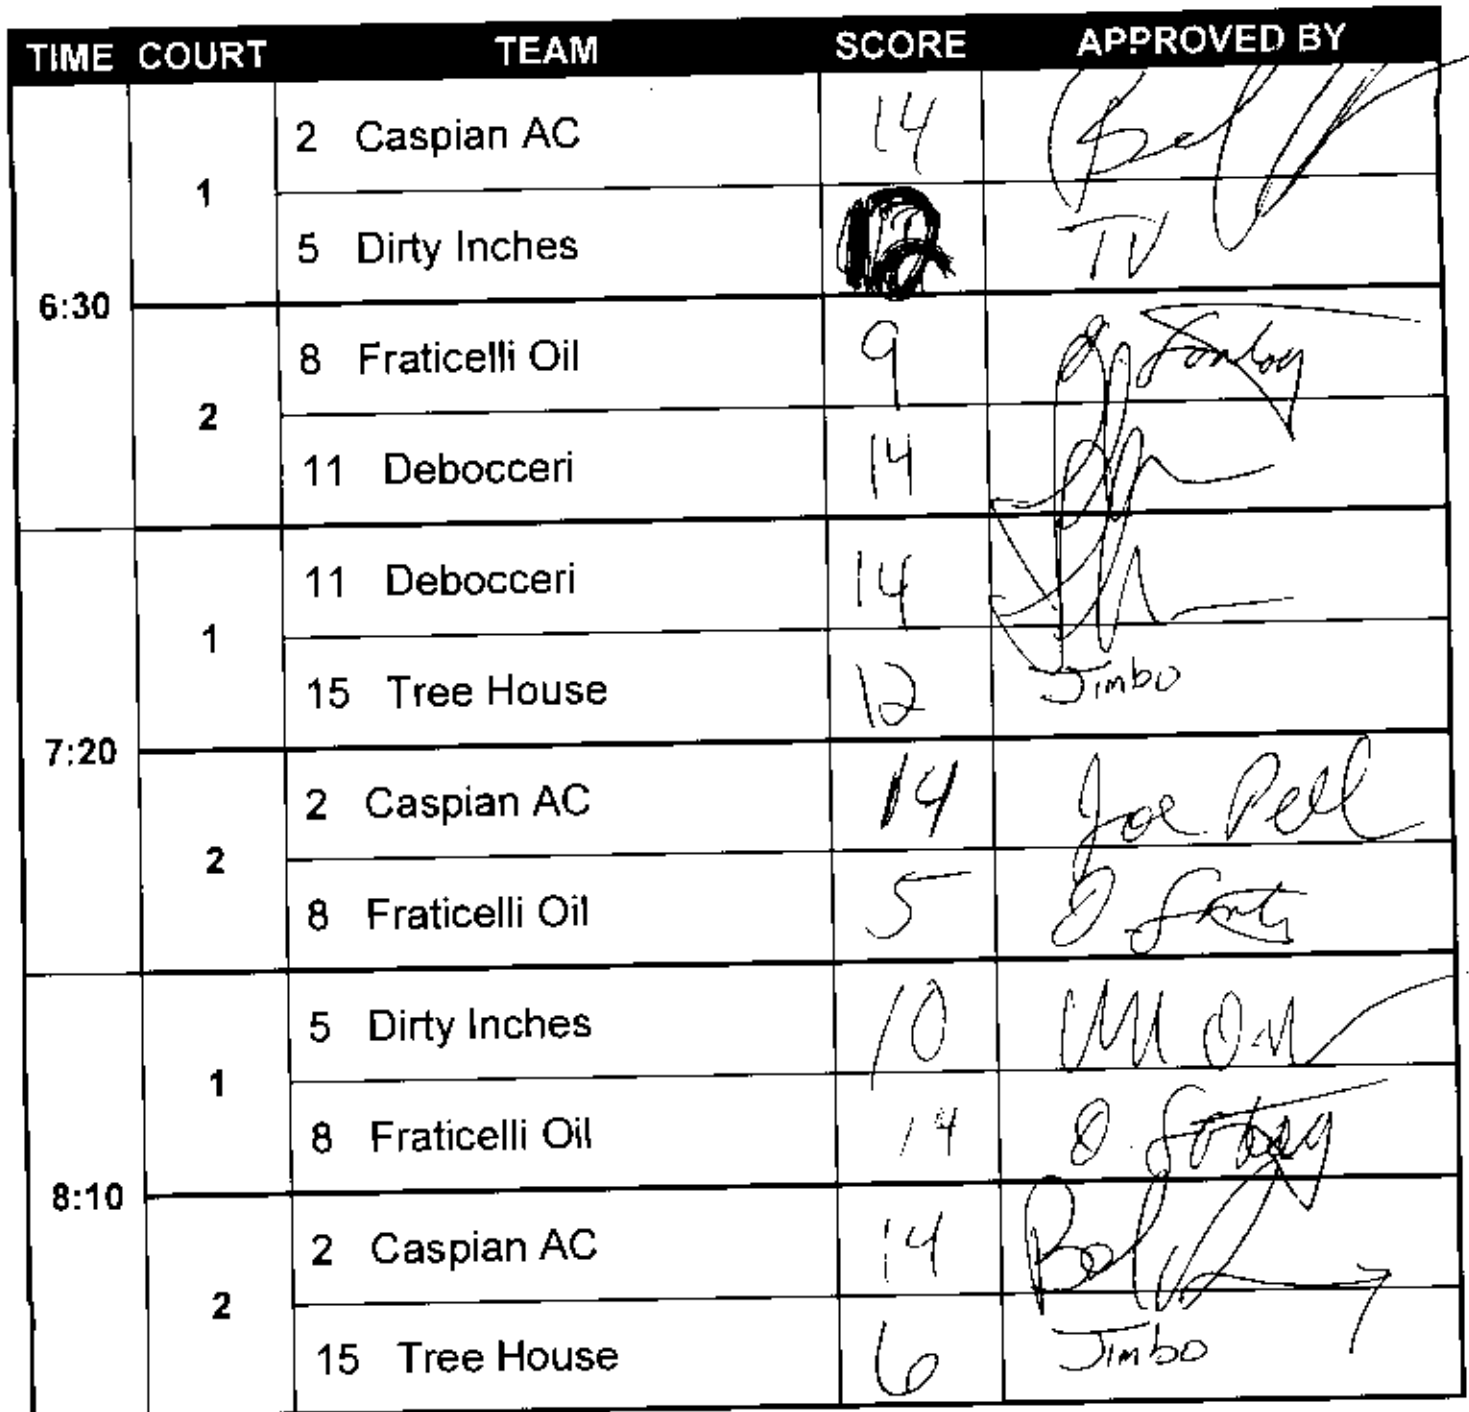 TIME COURT TEAM SCORE APPROVED BY
6:30
1
2 Caspian AC 14
5 Dirty Inches TV
2
8 Fraticelli Oil 9
11 Debocceri 14
7:20
1
11 Debocceri 14
15 Tree House 12 Jimbo
2
2 Caspian AC 14 Joe Pell
8 Fraticelli Oil 5
8:10
1
5 Dirty Inches 10
8 Fraticelli Oil 14
2
2 Caspian AC 14
15 Tree House 6 Jimbo